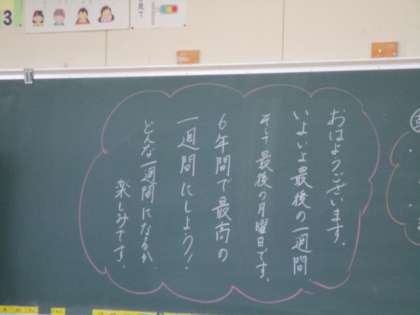 おはようございます。
いよいよ最後の一週間。
そして最後の月曜日です。
6年間で最高の
一週間にしよう!
どんな一週間になるか
楽しみです。